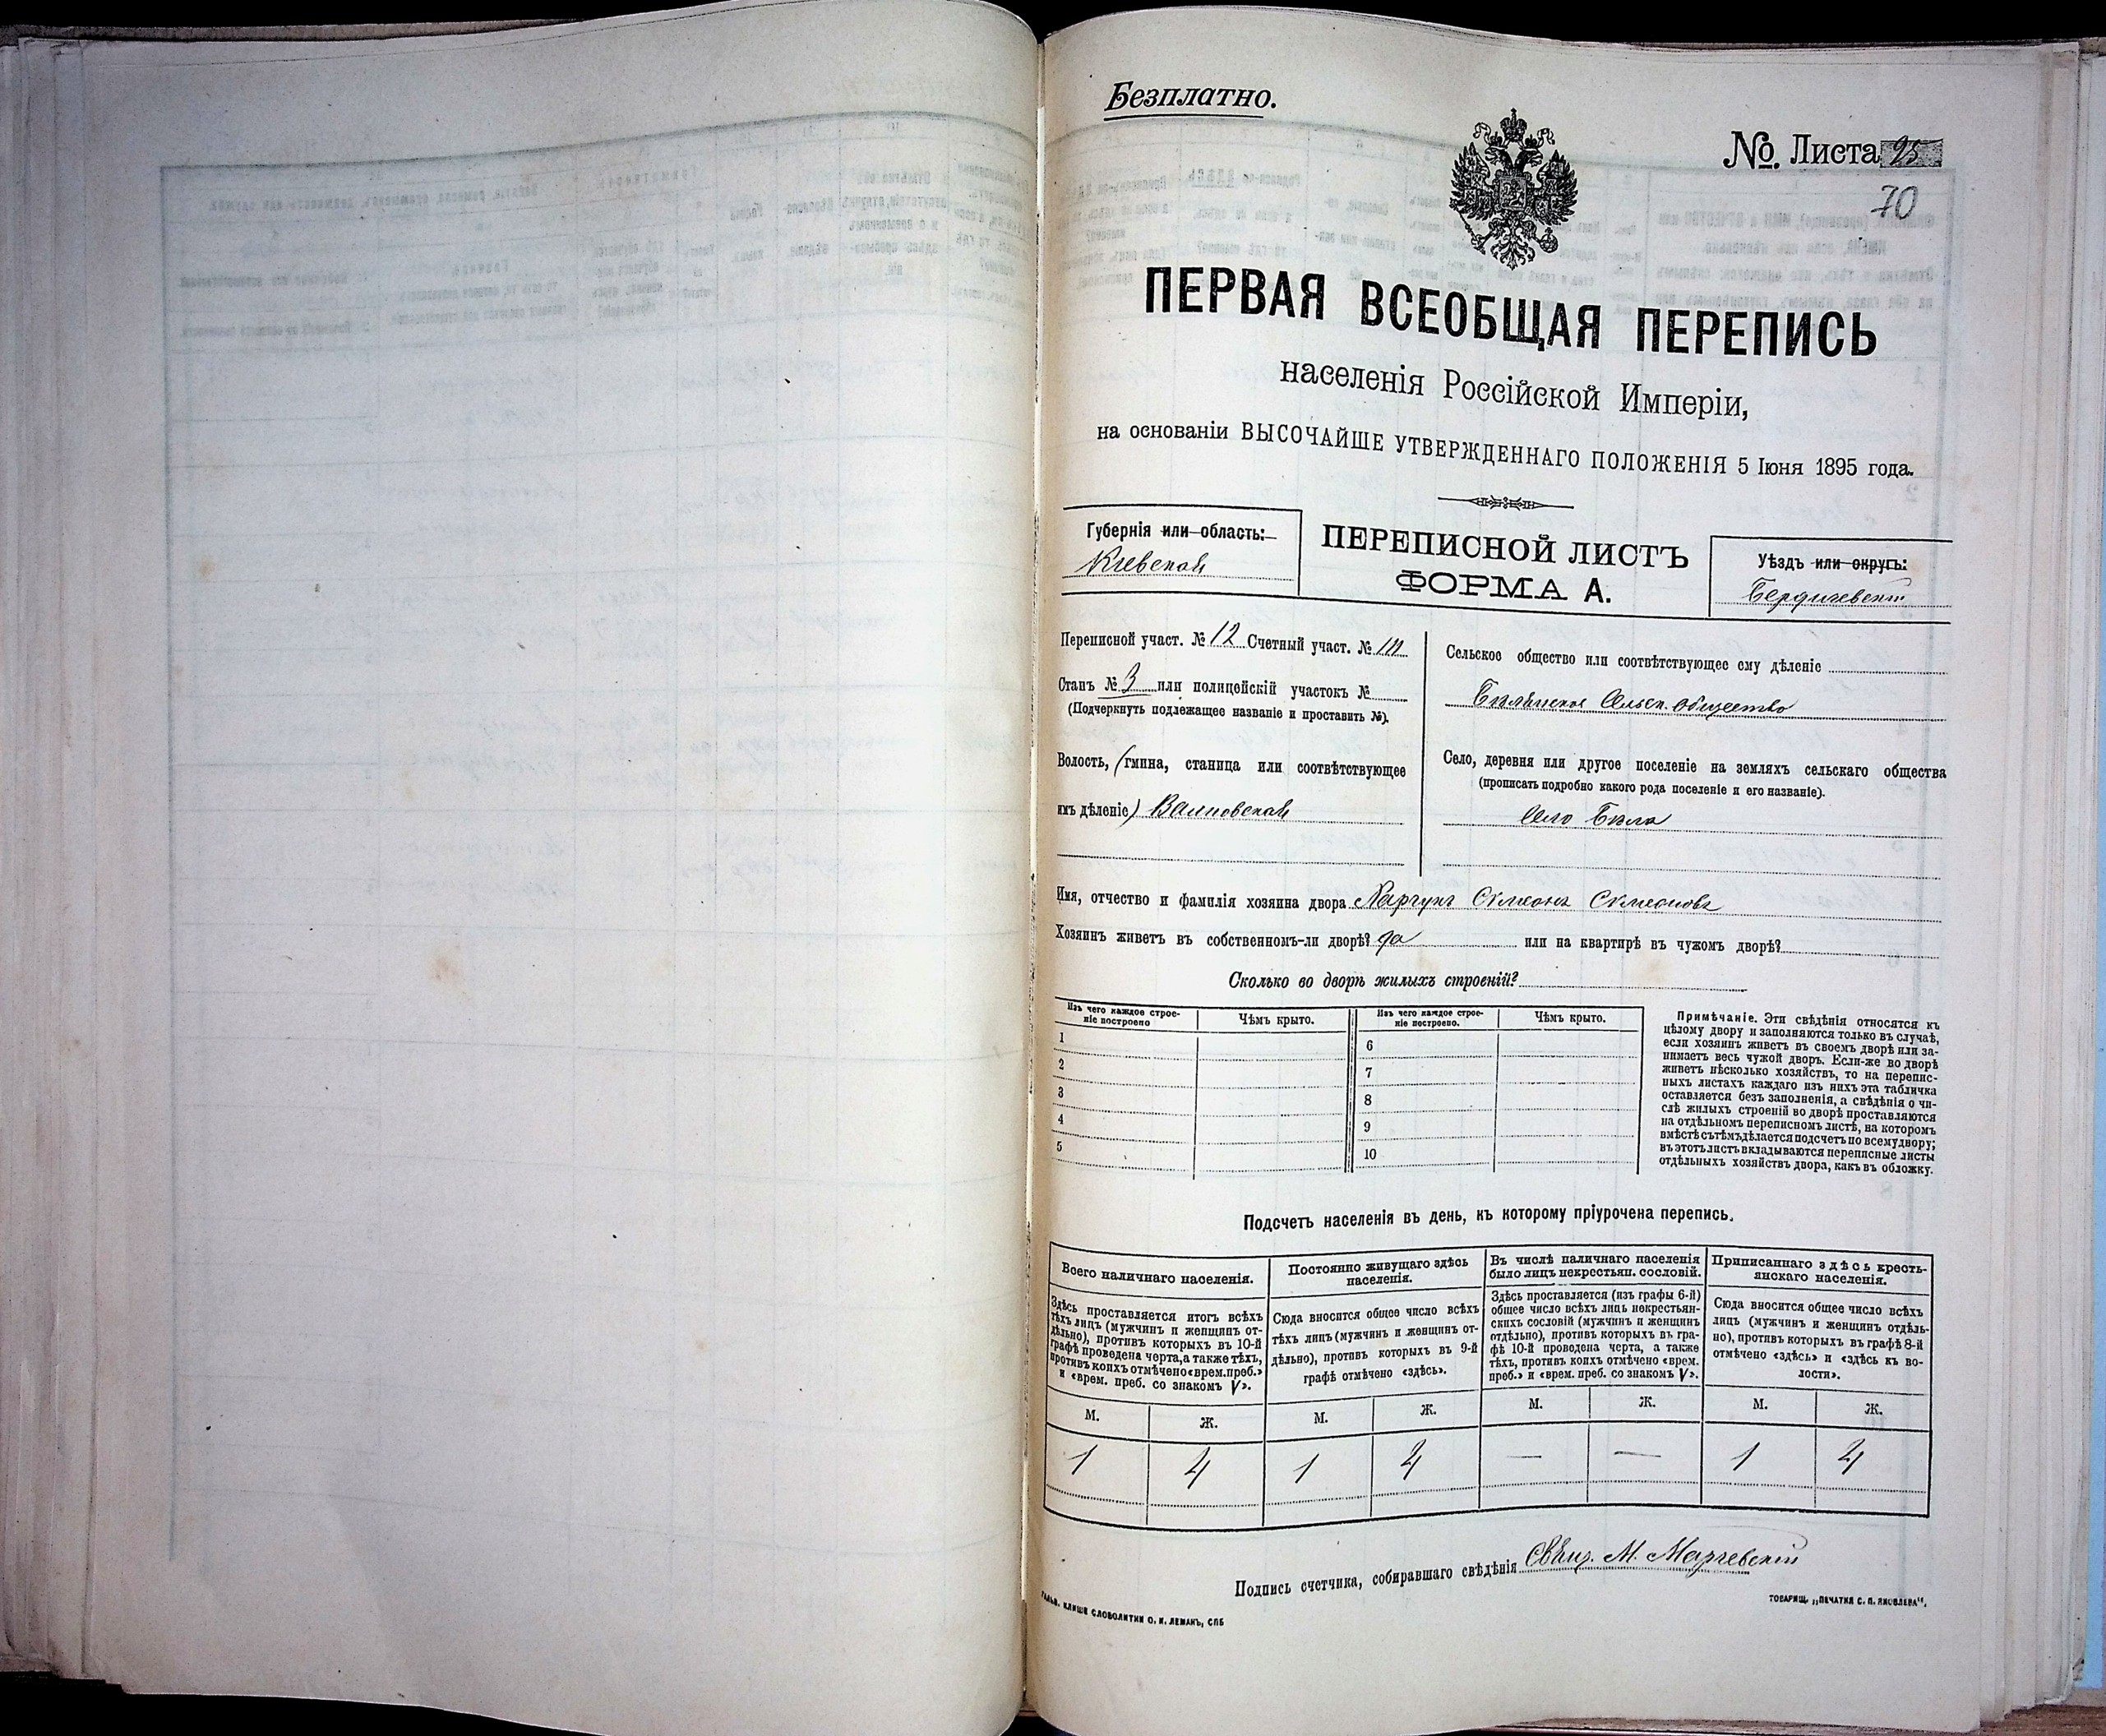 Безплатно.
№. Листа 25
70
ПЕРВАЯ ВСЕОБЩАЯ ПЕРЕПИСЬ
населенія Россійской Имперіи,
на основаніи ВЫСОЧАЙШЕ УТВЕРЖДЕННАГО ПОЛОЖЕНІЯ 5 Іюня 1895 года.
Губернія или область:
Кіевская
ПЕРЕПИСНОЙ ЛИСТЪ
ФОРМА А.
Уѣздъ или округъ:
Бердичевскій
Переписной участ. № 12 Счетный участ. № III
Станъ № 3 или полицейскій участокъ №
(Подчеркнуть подлежащее названіе и проставить №).
Волость, (гмина, станица или соотвѣтствующее
имъ дѣленіе)
Сельское общество или соотвѣтствующее ему дѣленіе
Сельск. общество
Село, деревня или другое поселеніе на земляхъ сельскаго общества
(прописать подробно какого рода поселеніе и его названіе).
Село
Имя, отчество и фамилія хозяина двора Симеонъ Симеоновъ
Хозяинъ живетъ въ собственномъ-ли дворѣ? да или на квартирѣ въ чужомъ дворѣ?
Сколько во дворѣ жилыхъ строеній?
Изъ чего каждое строе-
ніе построено
Чѣмъ крыто.
Изъ чего каждое строе-
ніе построено.
Чѣмъ крыто.
1
2
3
4
5
6
7
8
9
10
Примѣчаніе. Эти свѣдѣнія относятся къ
цѣлому двору и заполняются только въ случаѣ,
если хозяинъ живетъ въ своемъ дворѣ или за-
нимаетъ весь чужой дворъ. Если-же во дворѣ
живетъ нѣсколько хозяйствъ, то на перепис-
ныхъ листахъ каждаго изъ нихъ эта табличка
оставляется безъ заполненія, а свѣдѣнія о чи-
слѣ жилыхъ строеній во дворѣ проставляются
на отдѣльномъ переписномъ листѣ, на которомъ
вмѣстѣ съ тѣмъ дѣлается подсчетъ по всему двору;
въ этотъ листъ вкладываются переписные листы
отдѣльныхъ хозяйствъ двора, какъ въ обложку.
Подсчетъ населенія въ день, къ которому пріурочена перепись.
Всего наличнаго населенія.
Здѣсь проставляется итогъ всѣхъ
тѣхъ лицъ (мужчинъ и женщинъ от-
дѣльно), противъ которыхъ въ 10-й
графѣ проведена черта, а также тѣхъ,
противъ коихъ отмѣчено «врем. преб.»
и «врем. преб. со знакомъ V».
Постоянно живущаго здѣсь
населенія.
Сюда вносится общее число всѣхъ
тѣхъ лицъ (мужчинъ и женщинъ от-
дѣльно), противъ которыхъ въ 9-й
графѣ отмѣчено «здѣсь».
Въ числѣ наличнаго населенія
было лицъ некрестьян. сословій.
Здѣсь проставляется (изъ графы 6-й)
общее число всѣхъ лицъ некрестьян-
скихъ сословій (мужчинъ и женщинъ
отдѣльно), противъ которыхъ въ гра-
фѣ 10-й проведена черта, а также
тѣхъ, противъ коихъ отмѣчено «врем.
преб.» и «врем. преб. со знакомъ V».
Приписаннаго здѣсь кресть-
янскаго населенія.
Сюда вносится общее число всѣхъ
лицъ (мужчинъ и женщинъ отдѣль-
но), противъ которыхъ въ графѣ 8-й
отмѣчено «здѣсь» и «здѣсь къ во-
лости».
М. Ж. М. Ж. М. Ж. М. Ж.
1 4 1 4 — — 1 4
Подпись счетчика, собиравшаго свѣдѣнія Свящ. М.
КЛИШЕ СЛОВОЛИТНИ О. И. ЛЕМАНЪ, СПБ
ТОВАРИЩ. „ПЕЧАТНЯ С. П. ЯКОВЛЕВА“.